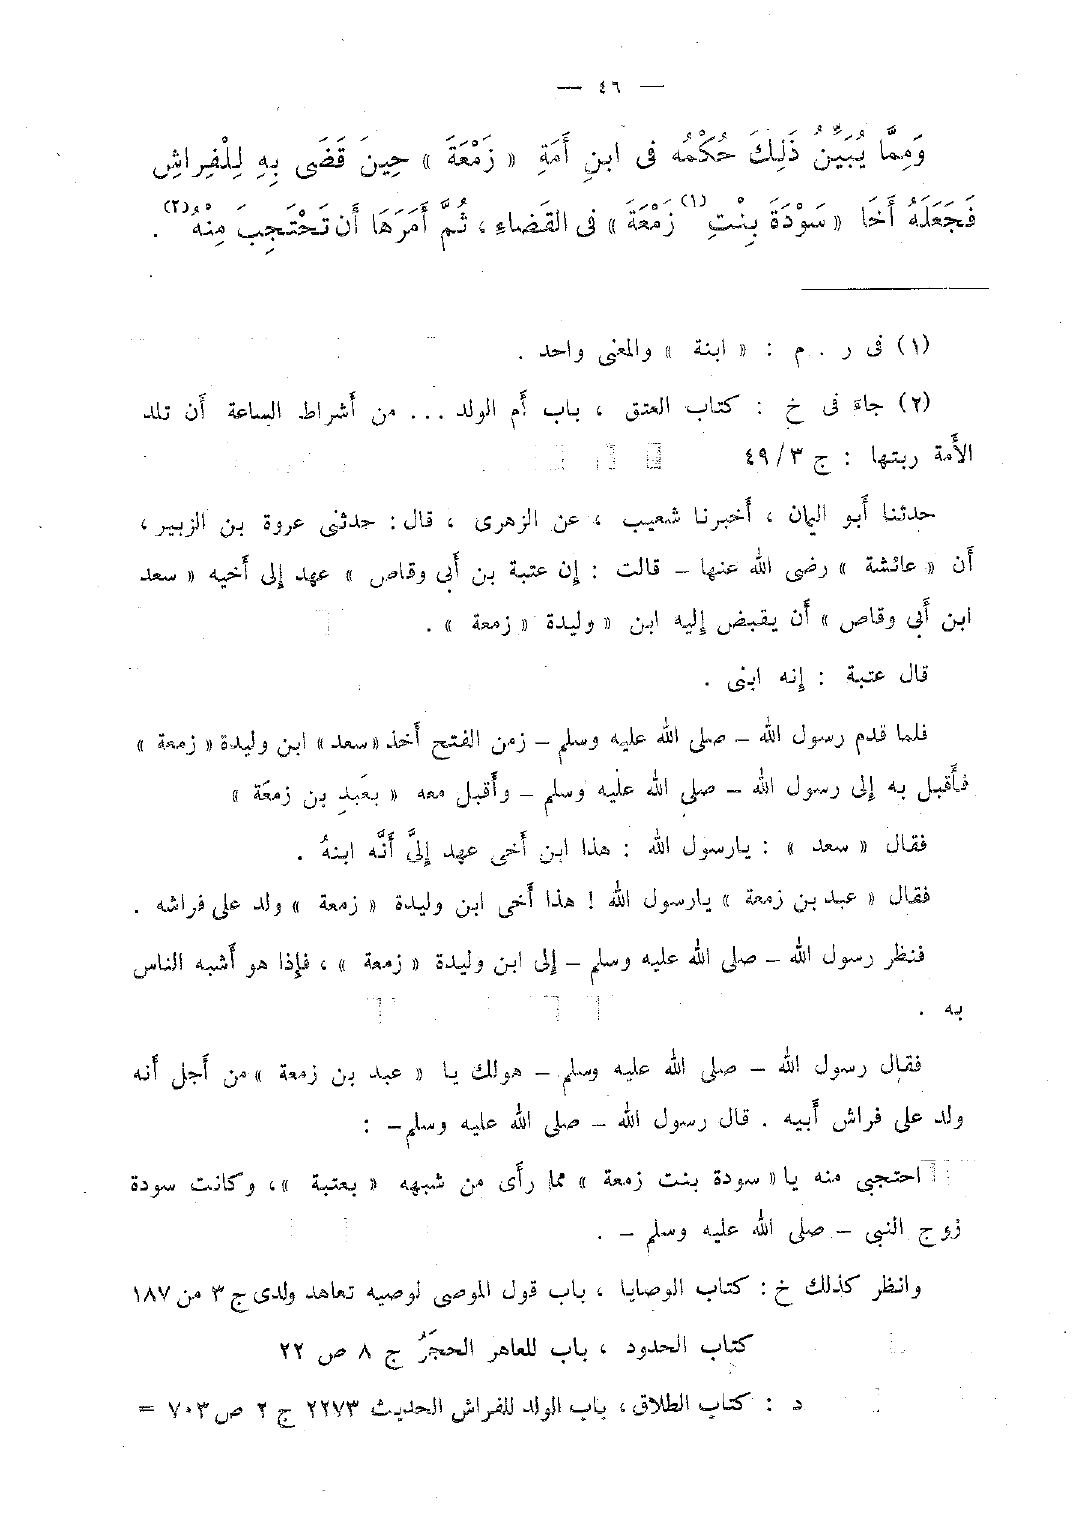 — ٤٦ —
وَمِمَّا يُبَيِّنُ ذَلِكَ حُكْمُه فى ابنِ أَمَةِ « زَمْعَةَ » حِينَ قَضَى بِهِ لِلْفِراشِ
فَجَعَلَهُ أَخَا « سَوْدَةَ بِنْتِ (١) زَمْعَةَ » فى القَضاءِ ، ثُمَّ أَمَرَهَا أَن تَحْتَجِبَ مِنْهُ (٢) .
(١) فى ر . م : « ابنة » والمعنى واحد .
(٢) جاءَ فى خ : كتاب العتق ، باب أم الولد ... من أشراط الساعة أن تلد
الأَمة ربتها : ج ٣ / ٤٩
حدثنا أَبو اليمان ، أَخبرنا شعيب ، عن الزهرى ، قال : حدثنى عروة بن الزبير ،
أَن « عائشة » رضى الله عنها – قالت : إن عتبة بن أَبى وقاص » عهد إلى أَخيه « سعد
ابن أَبى وقاص » أَن يقبض إليه ابن « وليدة « زمعة » .
قال عتبة : إنه ابنى .
فلما قدم رسول الله – صلى الله عليه وسلم – زمن الفتح أَخذ « سعد » ابن وليدة « زمعة »
فأَقبل به إلى رسول الله – صلى الله عليه وسلم – وأَقبل معه « بعَبدِ بن زمعَة »
فقال « سعد » : يارسول الله : هذا ابن أَخى عهد إلىَّ أَنَّه ابنهُ .
فقال « عبد بن زمعة » يارسول الله ! هذا أَخى ابن وليدة « زمعة » ولد على فراشه .
فنظر رسول الله – صلى الله عليه وسلم – إلى ابن وليدة « زمعة » ، فإذا هو أَشبه الناس
به .
فقال رسول الله – صلى الله عليه وسلم – هولك يا « عبد بن زمعة » من أَجل أَنه
ولد على فراش أَبيه . قال رسول الله – صلى الله عليه وسلم – :
احتجبى منه يا « سودة بنت زمعة » مما رأَى من شبهه « بعتبة » ، وكانت سودة
زوج النبى – صلى الله عليه وسلم – .
وانظر كذلك خ : كتاب الوصايا ، باب قول الموصى لوصيه تعاهد ولدى ج ٣ من ١٨٧
كتاب الحدود ، باب للعاهر الحجَرُ ج ٨ ص ٢٢
د : كتاب الطلاق ، باب الولد للفراش الحديث ٢٢٧٣ ج ٢ ص ٧٠٣ =